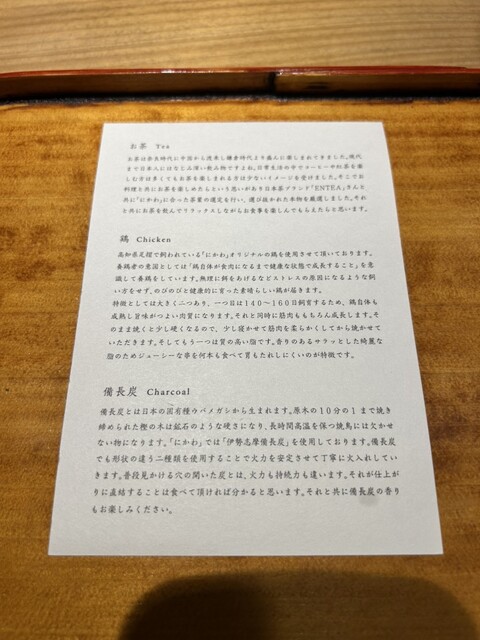 お茶 Tea
お茶は奈良時代に中国から渡来し鎌倉時代より盛んに楽しまれてきました。現代
まで日本人にはなじみ深い飲み物ですよね。日常生活の中でコーヒーや紅茶を楽
しむ方は多くてもお茶を楽しまれる方は少ないイメージを受けました。そこでお
料理と共にお茶を楽しめたらという思いがあり日本茶ブランド「ENTEA」さんと
共に「にかわ」に合った茶葉の選定を行い、選び抜かれた本物を厳選しました。それ
と共にお茶を飲んでリラックスしながらお食事を楽しんでもらえたらと思います。
鶏 Chicken
高知県足摺で飼われている「にかわ」オリジナルの鶏を使用させて頂いております。
養鶏者の意図としては「鶏自体が食肉になるまで健康な状態で成長すること」を意
識して養鶏をしています。無理に餌をあげるなどストレスの原因になるような飼
い方をせず、のびのびと健康的に育った素晴らしい鶏が届きます。
特徴としては大きく二つあり、一つ目は140〜160日飼育するため、鶏自体も
成熟し旨味がつよい肉質になります。それと同時に筋肉ももちろん成長します。そ
のまま焼くと少し硬くなるので、少し寝かせて筋肉を柔らかくしてから焼かせて
いただきます。そしてもう一つは質の高い脂です。香りのあるサラッとした綺麗な
脂のためジューシーな串を何本も食べて胃もたれしにくいのが特徴です。
備長炭 Charcoal
備長炭とは日本の固有種ウバメガシから生まれます。原木の10分の1まで焼き
締められた樫の木は鉱石のような硬さになり、長時間高温を保つ焼鳥には欠かせ
ない物になります。「にかわ」では「伊勢志摩備長炭」を使用しております。備長炭
でも形状の違う二種類を使用することで火力を安定させて丁寧に火入れしてい
きます。普段見かける穴の開いた炭とは、火力も持続力も違います。それが仕上が
りに直結することは食べて頂ければ分かると思います。それと共に備長炭の香り
もお楽しみください。